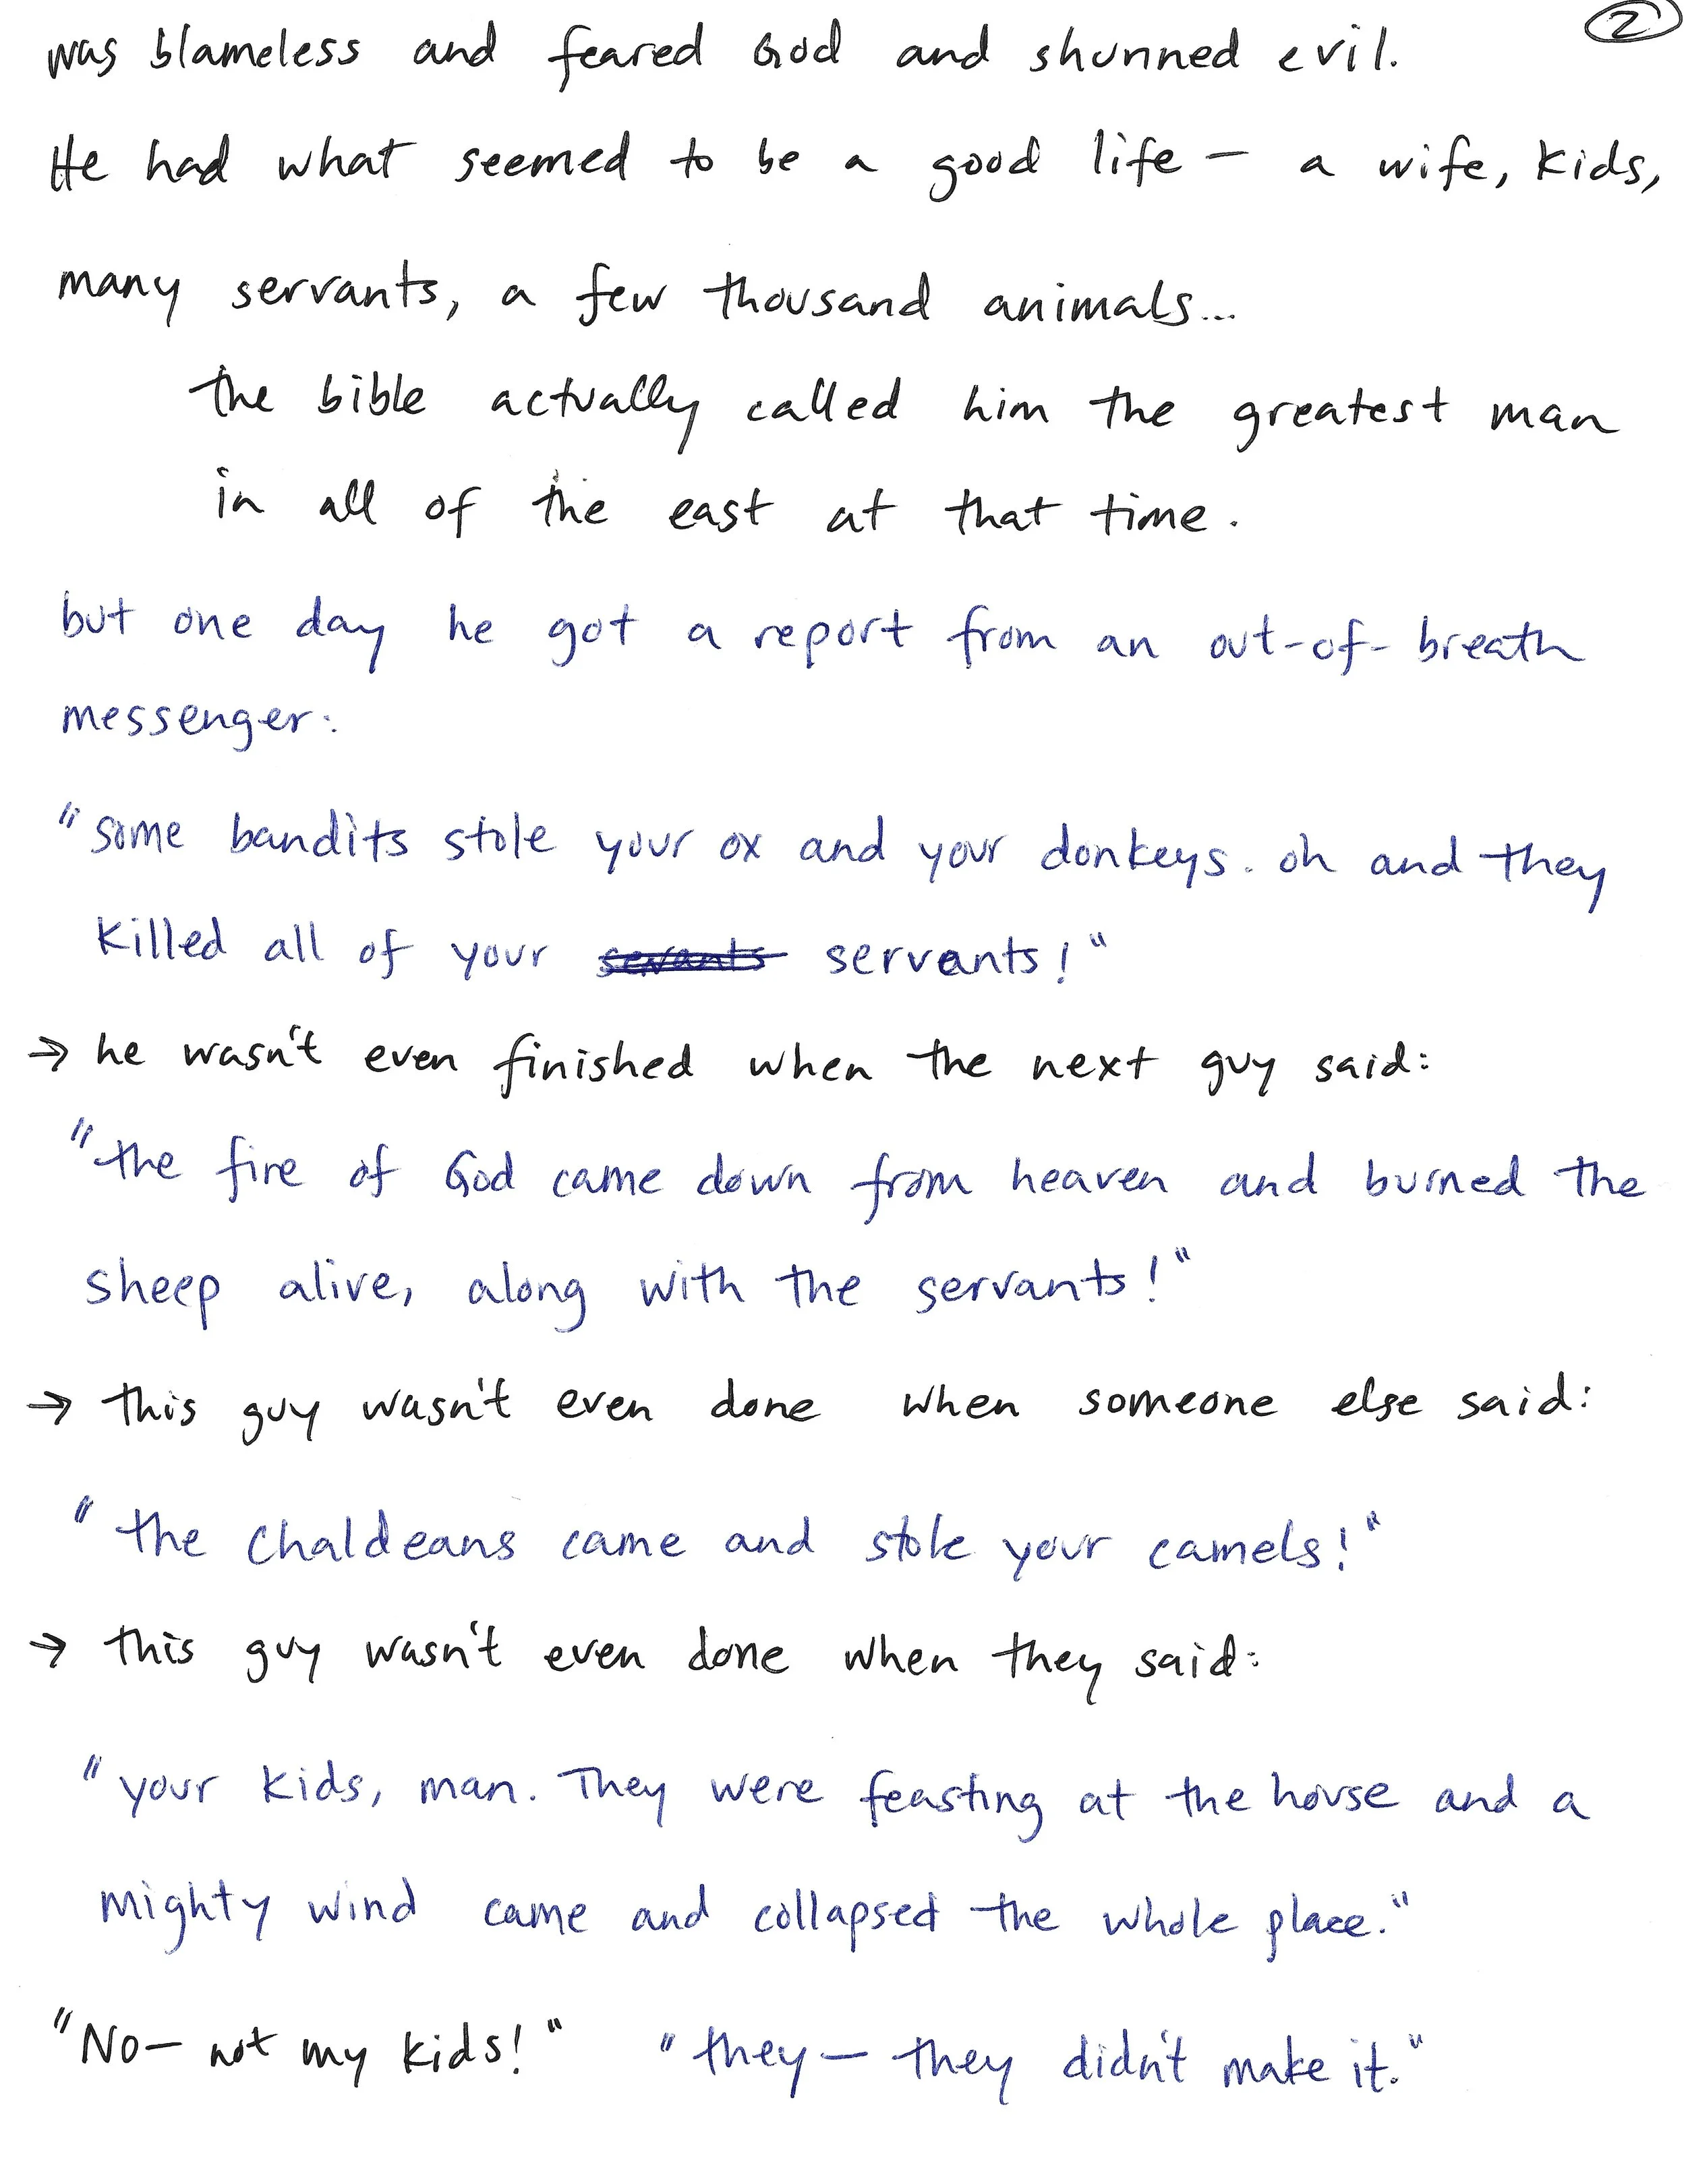 2
was blameless and feared God and shunned evil.
He had what seemed to be a good life — a wife, kids,
many servants, a few thousand animals...
the bible actually called him the greatest man
in all of the east at that time.
but one day he got a report from an out-of-breath
messenger:
"some bandits stole your ox and your donkeys. oh and they
killed all of your servants servants!"
→ he wasn't even finished when the next guy said:
"the fire of God came down from heaven and burned the
sheep alive, along with the servants!"
→ this guy wasn't even done when someone else said:
"the Chaldeans came and stole your camels!"
→ this guy wasn't even done when they said:
"your kids, man. They were feasting at the house and a
mighty wind came and collapsed the whole place."
"No— not my kids!" "they— they didn't make it."